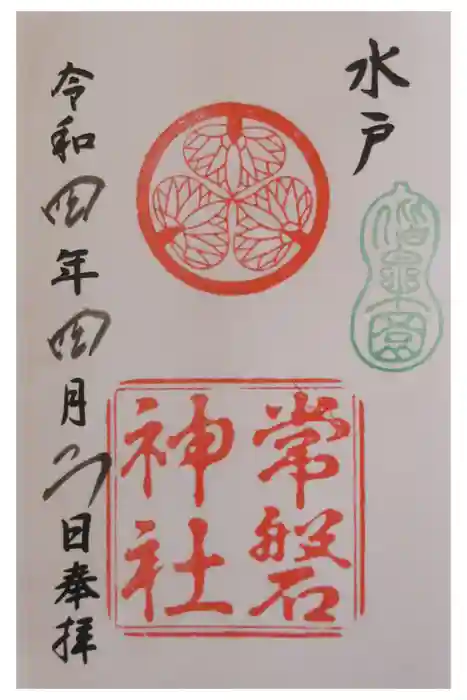 水戸
偕樂園
常磐
神社
令和四年四月日奉拝